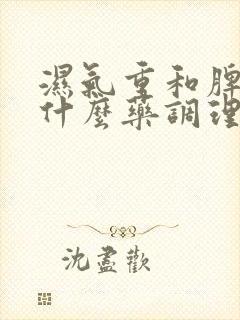 濕氣重和脾
什麼藥調理
沈盡歡